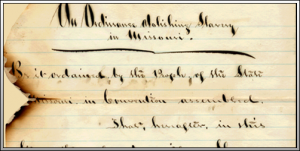 An Ordinance abolishing Slavery
in Missouri.
Be it ordained by the People of the State
Missouri in Convention assembled.
That, hereafter, in this